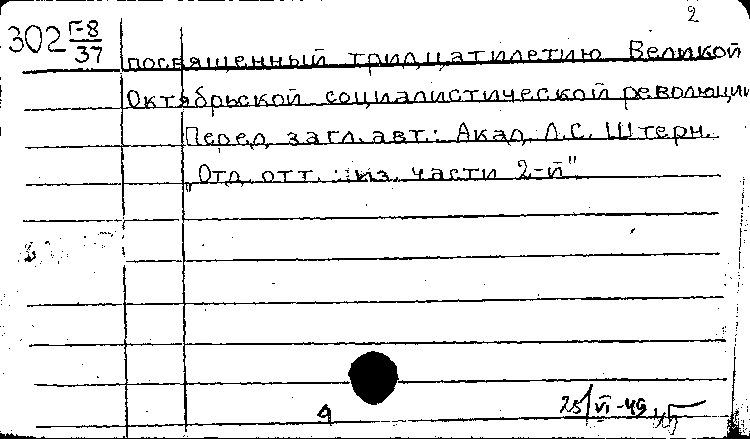 2
302 Г-8/37
посвященный тридцатилетию Великой
Октябрьской социалистической революции
Перед загл. авт.: Акад. Л.С. Штерн.
„Отд. отт. из. части 2-й"
25/VI-49